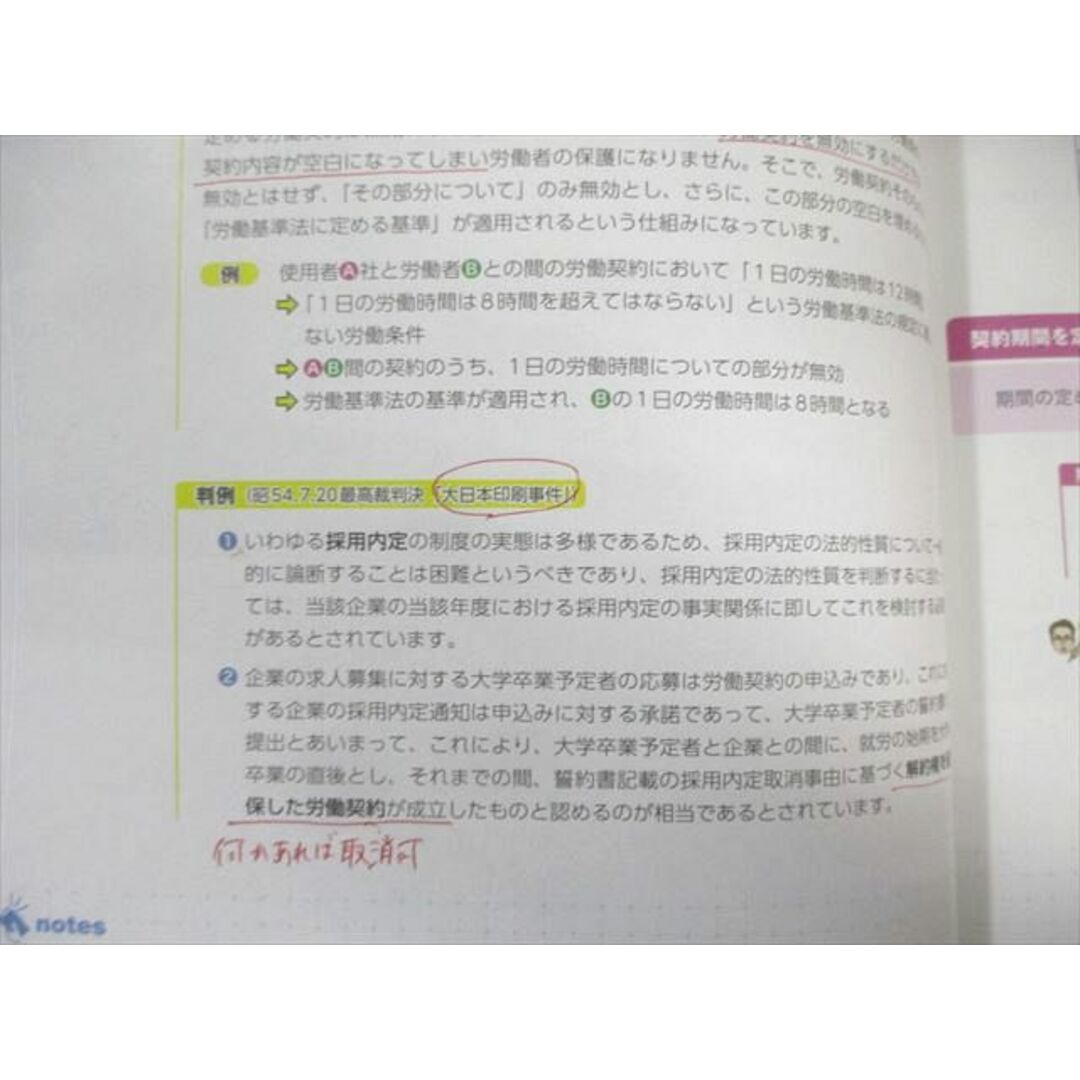 契約を無効にするだけでは
契約内容が空白になってしまい労働者の保護になりません。そこで、労働契約その
無効とはせず、「その部分について」のみ無効とし、さらに、この部分の空白を埋め
「労働基準法に定める基準」が適用されるという仕組みになっています。
例 使用者A社と労働者Bとの間の労働契約において「1日の労働時間は12時間
⇨「1日の労働時間は8時間を超えてはならない」という労働基準法の規定に
ない労働条件
⇨AB間の契約のうち、1日の労働時間についての部分が無効
⇨労働基準法の基準が適用され、Bの1日の労働時間は8時間となる
判例 (昭54.7.20最高裁判決「大日本印刷事件」)
❶いわゆる採用内定の制度の実態は多様であるため、採用内定の法的性質について一
的に論断することは困難というべきであり、採用内定の法的性質を判断するに当
ては、当該企業の当該年度における採用内定の事実関係に即してこれを検討する
があるとされています。
❷企業の求人募集に対する大学卒業予定者の応募は労働契約の申込みであり、これに
する企業の採用内定通知は申込みに対する承諾であって、大学卒業予定者の誓約
提出とあいまって、これにより、大学卒業予定者と企業との間に、就労の始期を
卒業の直後とし、それまでの間、誓約書記載の採用内定取消事由に基づく解約権を
保した労働契約が成立したものと認めるのが相当であるとされています。
何かあれば取消可
notes
契約期間を定
期間の定め